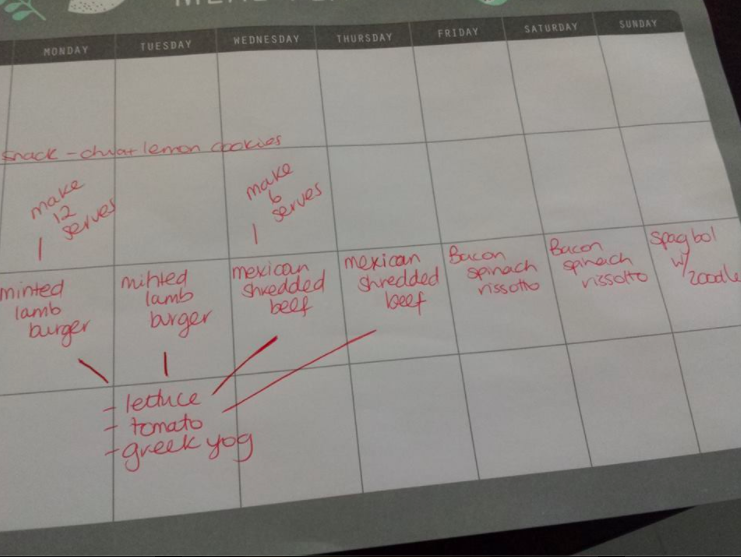 MONDAY TUESDAY WEDNESDAY THURSDAY FRIDAY SATURDAY SUNDAY
snack - lemon cookies
make
12
serves
make
6
serves
minted
lamb
burger
minted
lamb
burger
mexican
shredded
beef
mexican
shredded
beef
Bacon
spinach
rissotto
Bacon
spinach
rissotto
Spag bol
w/
zoodle
- lettuce
- tomato
- greek yog